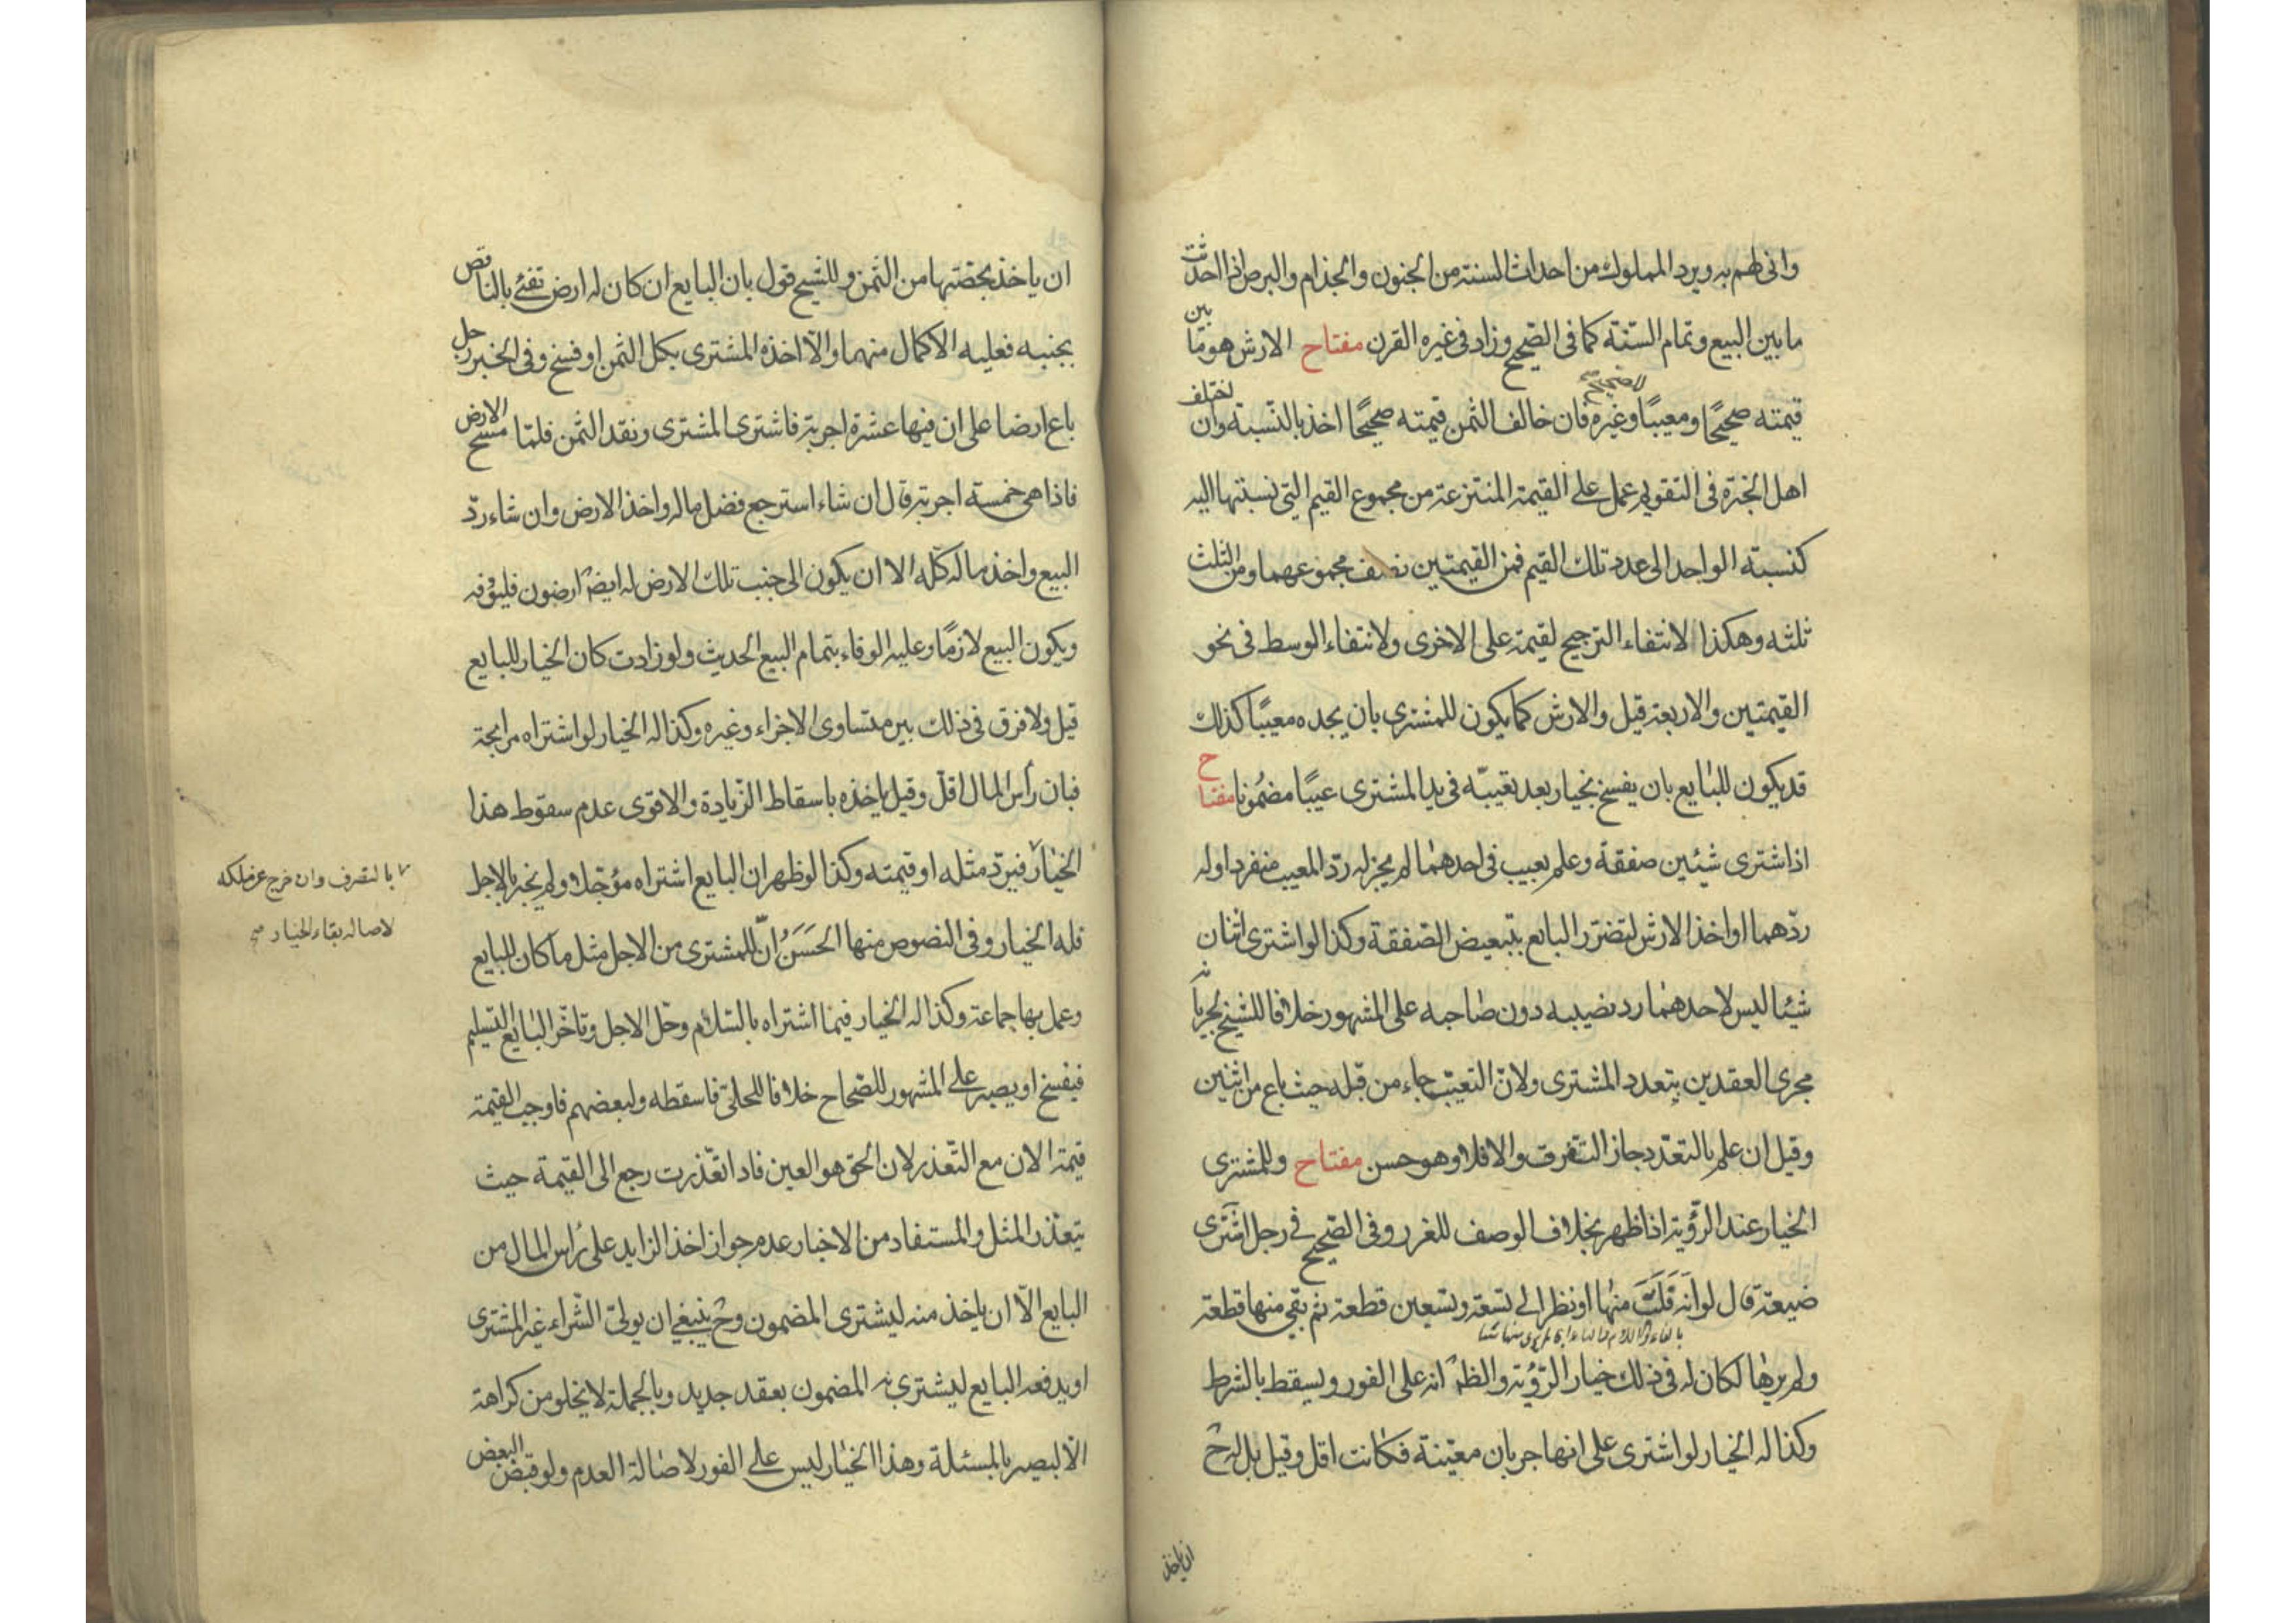 وانى لهم به ويرد المملوك من احداث السنة من الجنون والجذام والبرص اذا احدثت
ما بين البيع وتمام السّنة كما فى الصّحيح وزاد فى غيره القرن مفتاح الارش هو ما بين
قيمته صحيحًا ومعيبًا وغيره فان خالف الثمن قيمته صحيحًا اخذ بالنّسبة وان اختلف
اهل الخبرة فى التقويم عمل على القيمة المنتزعة من مجموع القيم التى نسبتها اليه
كنسبته الواحد الى عدد تلك القيم فمن القيمتين نصف مجموعهما ومن الثلث
ثلثه وهكذا لانتفاء الترجيح لقيمة على الاخرى ولانتفاء الوسط فى نحو
القيمتين والاربعة قيل والارش كما يكون للمشترى بان يجده معيبًا كذلك
قد يكون للبايع بان يفسخ بخيار بعد تعيبّه فى يد المشترى عيبًا مضمُونا مفتاح
اذا اشترى شيئين صفقة وعلم بعيب فى احدهما لم يجز له ردّ المعيب منفردا وله
ردّهما او اخذ الارش لتضرّر البايع بتبعيض الصّفقة وكذا لو اشترى اثنان
شيئا ليس لاحدهما رد نصيبه دون صاحبه على المشهور خلافا للشيخ لجريانه
مجرى العقدين بتعدد المشترى ولانّ التعيّب جاء من قبله حيث باع من اثنين
وقيل ان علم بالتعدّد جاز التّفرق والا فلا وهو حسن مفتاح وللمشترى
الخيار عند الرّؤية اذا ظهر بخلاف الوصف للغرر وفى الصّحيح فى رجل اشترى
ضيعة قال لو انه قَلَبَ منها او نظر الى تسعة وتسعين قطعة ثم بقى منها قطعة
ولم يرها لكان له فى ذلك خيار الرّؤية والظ انه على الفور ويسقط بالشرط
وكذا له الخيار لو اشترى على انها جربان معيّنة فكانت اقل وقيل بل له ح
ان ياخذ
ان ياخذ بحصّتها من الثمن وللشيخ قول بان البايع ان كان له ارض تفئ بالناقص
بجنبه فعليه الاكمال منهما والّا اخذه المشترى بكل الثمن او فسخ وفى الخبر رجل
باع ارضا على ان فيها عشرة اجربة فاشترى المشترى ونقد الثمن فلمّا مسح الارض
فاذا هى خمسة اجربة قال ان شاء استرجع فضل ماله واخذ الارض وان شاء ردّ
البيع واخذ ماله كلّه الا ان يكون الى جنب تلك الارض له ايض ارضون فليوفه
ويكون البيع لازمًا وعليه الوفاء بتمام البيع الحديث ولو زادت كان الخيار للبايع
قيل ولا فرق فى ذلك بين متساوى الاجزاء وغيره وكذا له الخيار لو اشتراه مرابحة
فبان رأس المال اقلّ وقيل ياخذه باسقاط الزّيادة والاقوى عدم سقوط هذا
الخيار فيردّ مثله او قيمته وكذا لو ظهر ان البايع اشتراه مؤجّلا ولم يخبر بالاجل
فله الخيار وفى النصوص منها الحَسَن انّ للمشترى من الاجل مثل ما كان للبايع
وعمل بها جماعة وكذا له الخيار فيما اشتراه بالسّلام وحّل الاجل وتاخّر البايع التسليم
فيفسخ او يصبر على المشهور للصّحاح خلافا للحلى فاسقطه ولبعضهم فاوجب القيمة
قيمة الان مع التّعذر لان الحق هو العين فاذا تعّذرت رجع الى القيمة حيث
يتعذّر المثل والمستفاد من الاخبار عدم جواز اخذ الزايد على رأس المال من
البايع الّا ان ياخذ منه ليشترى المضمون وح ينبغى ان يولىّ الشّراء غير المشترى
او يدفعه البايع ليشترى به المضمون بعقد جديد وبالجملة لا يخلو من كراهة
الّا لبصير بالمسئلة وهذا الخيار ليس على الفور لاصالة العدم ولو قبض البعض
بالتصرف وان خرج عن ملكه
لاصالة بقاء الخيار صح